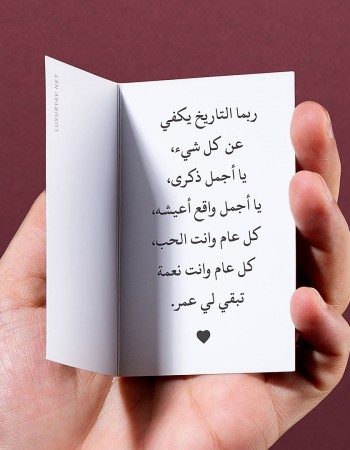 ربما التاريخ يكفي
عن كل شيء،
يا أجمل ذكرى،
يا أجمل واقع أعيشه،
كل عام وانت الحب،
كل عام وانت نعمة
تبقي لي عمر.